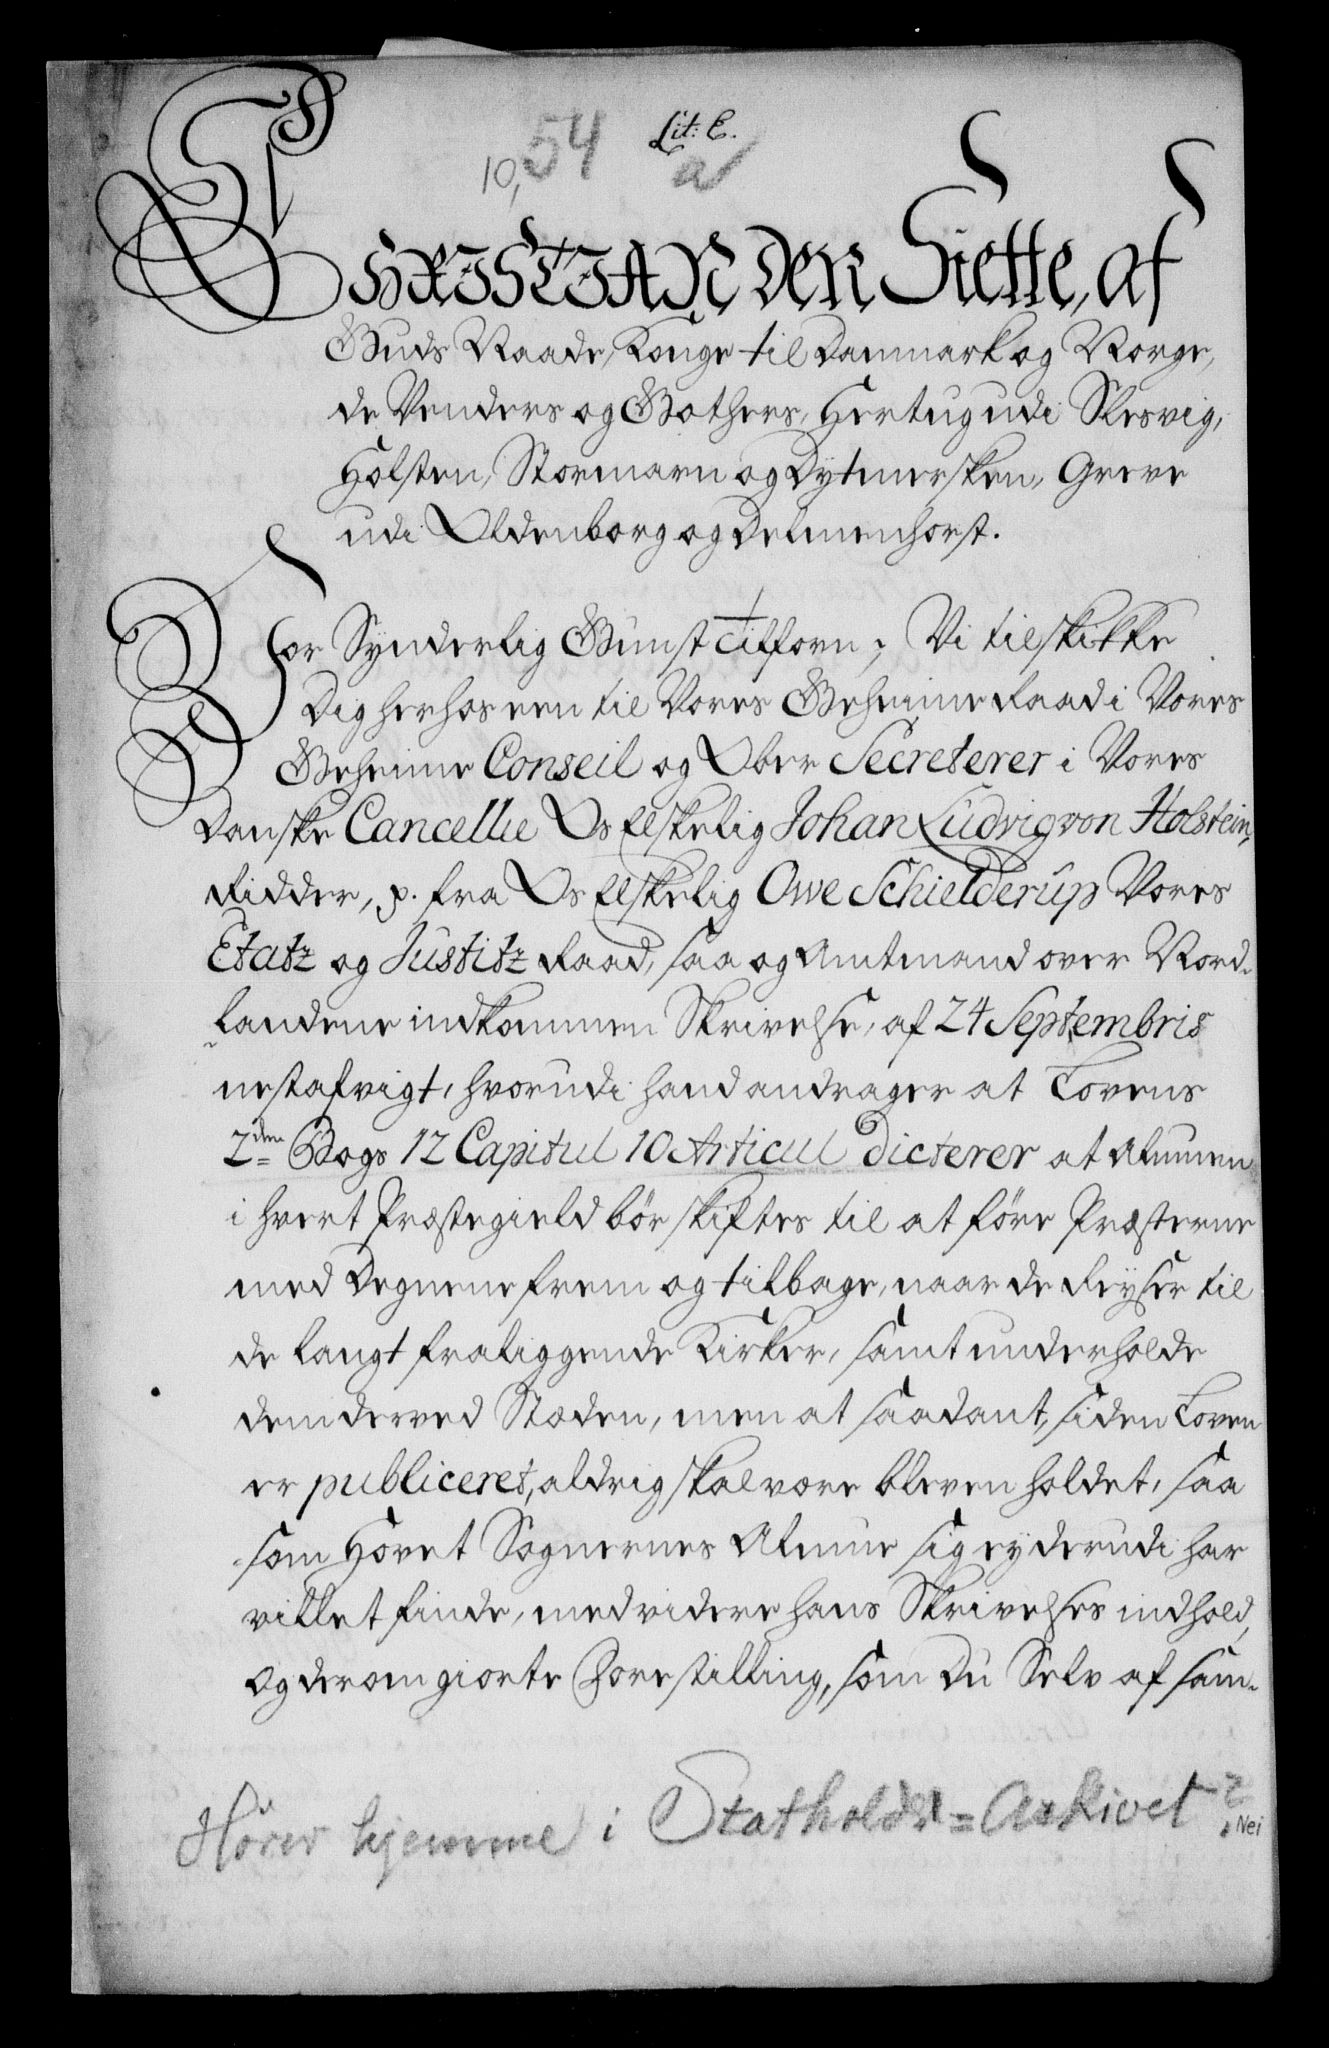 Lit: C.
10, 54 a
CHRISTIAN den Siette, af
Guds Naade, Konge til Danmark og Norge,
de Venders og Gothers, Hertug udi Slesvig,
Holsten, Stormarn og Dytmersken, Greve
udi Oldenborg og Delmenhorst.
Vor Synderlig Gunst tilforn; Vi tilskikke
Dig herhos een til Vores Geheime Raad i Vores
Geheime Conseil og Ober Secreterer i Vores
Danske Cancellie Os Elskelig Johan Ludvig von Holstein,
Ridder, p. fra Os Elskelig Owe Schielderup Vores
Etatz og Justitz Raad, saa og Amtmand over Nord-
landene indkommen Skrivelse, af 24 Septembris
nestafvigt, hvorudi hand andrager at Lovens
2den Bogs 12 Capitul 10 Articul dicterer at Almuen
i hvert Præstegield bør skiftes til at føre Præsterne
med Degnene frem og tilbage, naar de Reyser til
de langt fraliggende Kirker, samt underholde
dem derved Stæden, men at saadant, siden Loven
er publiceret, aldrig skal være bleven holdet, saa
som Hovet Sognernes Almue sig ey derudi har
villet finde, med videre hans Skrivelses indhold,
og derom giorte Forestilling, som Du Selv af sam-
Hører hjemme i Statholder=Arkivet?
Nei